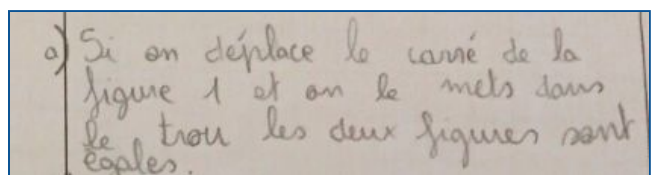 a) Si on déplace le carré de la
figure 1 et on le mets dans
le trou les deux figures sont
égales.